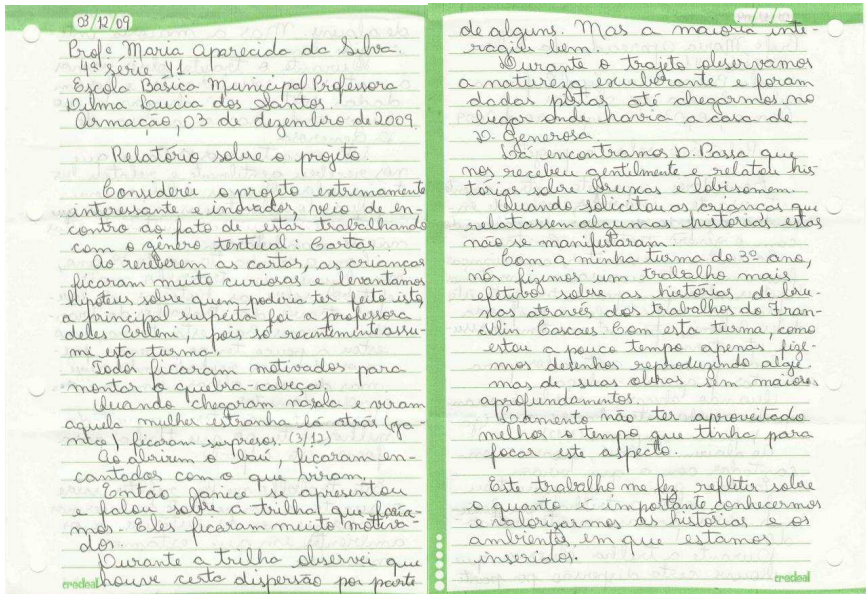 03/12/09
Profª Maria Aparecida da Silva.
4ª série 41
Escola Básica Municipal Professora
Dilma Lucia dos Santos.
Armação, 03 de dezembro de 2009.
Relatório sobre o projeto.
Considerei o projeto extremamente
interessante e inovador, veio de en-
contro ao fato de estar trabalhando
com o gênero textual: Cartas.
Ao receberem as cartas, as crianças
ficaram muito curiosas e levantamos
hipóteses sobre quem poderia ter feito isto,
a principal suspeita foi a professora
deles Cirleni, pois só recentemente assu-
mi esta turma.
Todos ficaram motivados para
montar o quebra-cabeça.
Quando chegaram na sala e viram
aquela mulher estranha lá atrás
ficaram surpresos. (3/12)
Ao abrirem o baú, ficaram en-
cantados com o que viram.
Então Janice se apresentou
e falou sobre a trilha que faría-
mos. Eles ficaram muito motiva-
dos.
Durante a trilha observei que
houve certa dispersão por parte
credeal
de alguns. Mas a maioria inte-
ragiu bem.
Durante o trajeto observamos
a natureza exuberante e foram
dadas pistas até chegarmos no
lugar onde havia a casa de
D. Generosa.
Lá encontramos D. Passa que
nos recebeu gentilmente e relatou his-
tórias sobre bruxas e lobisomem.
Quando solicitou as crianças que
relatassem algumas histórias estas
não se manifestaram.
Com a minha turma do 3º ano,
nós fizemos um trabalho mais
efetivo sobre as histórias de bru-
xas através dos trabalhos do Fran-
klin Cascaes. Com esta turma, como
estou a pouco tempo apenas, fize-
mos desenhos reproduzindo algu-
mas de suas obras sem maiores
aprofundamentos.
Lamento não ter aproveitado
melhor o tempo que tinha para
focar este aspecto.
Este trabalho me fez refletir sobre
o quanto é importante conhecermos
e valorizarmos as histórias e os
ambientes em que estamos
inseridos.
credeal